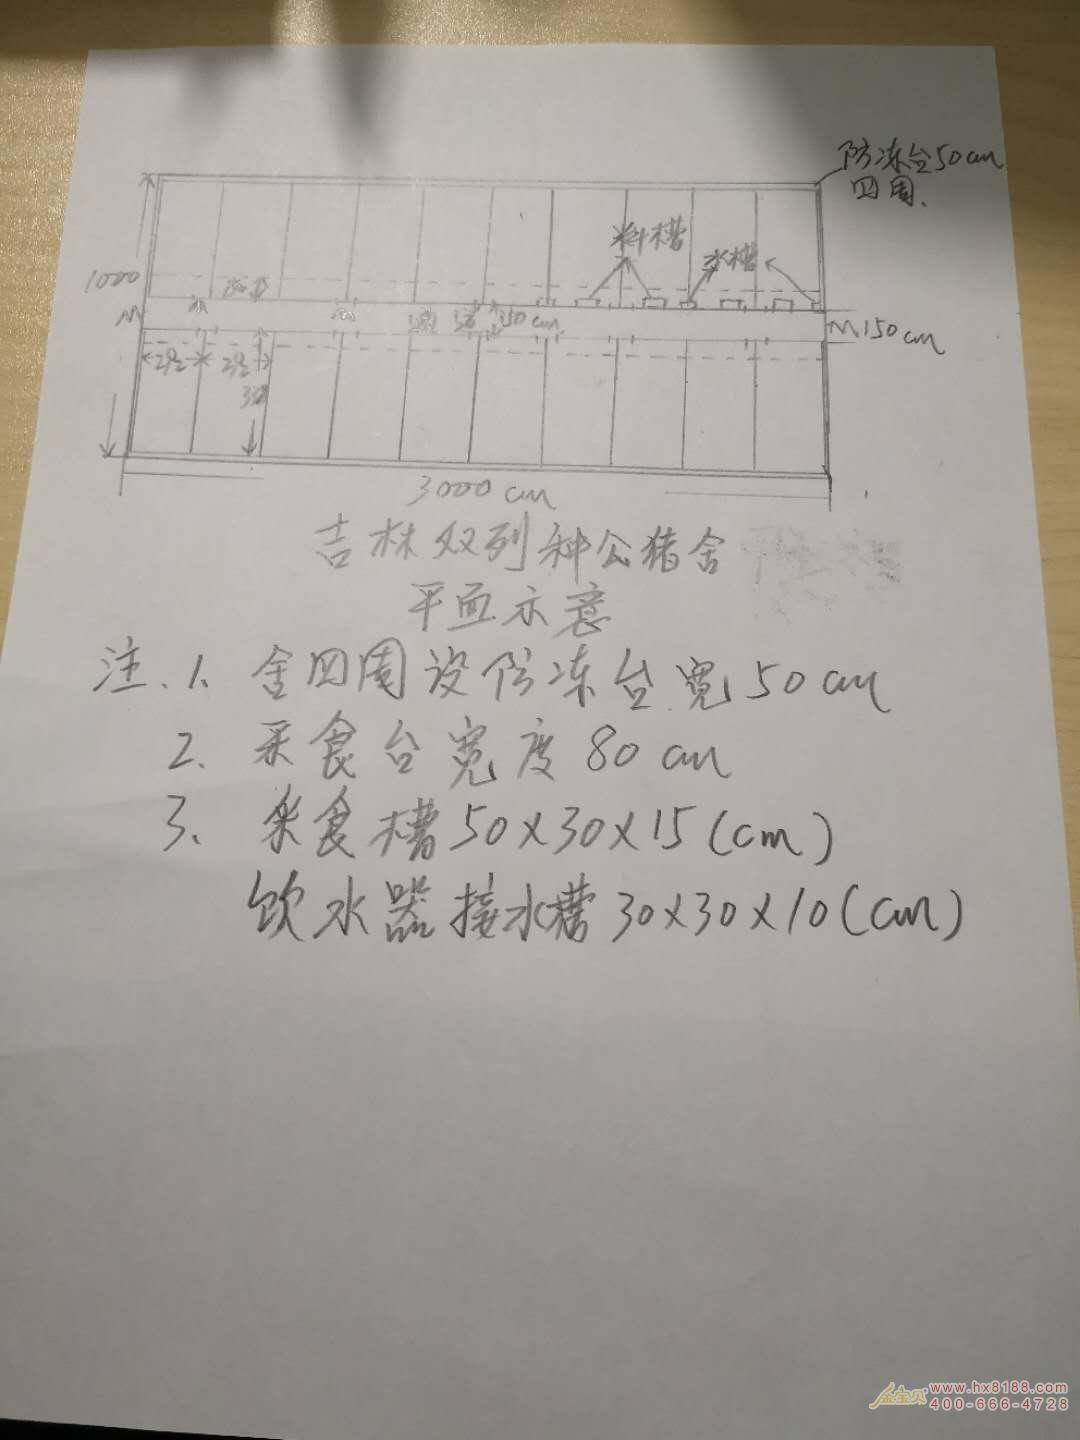 防冻台50cm
四周.
料槽
水槽
1000
M
150cm
M150cm
292
292
3000cm
吉林双列种公猪舍
平面示意
注.1、舍四周设防冻台宽50cm
2、采食台宽度80cm
3、采食槽50×30×15(cm)
饮水器接水槽30×30×10(cm)
金宝贝
www.hx8188.com
400-666-4728